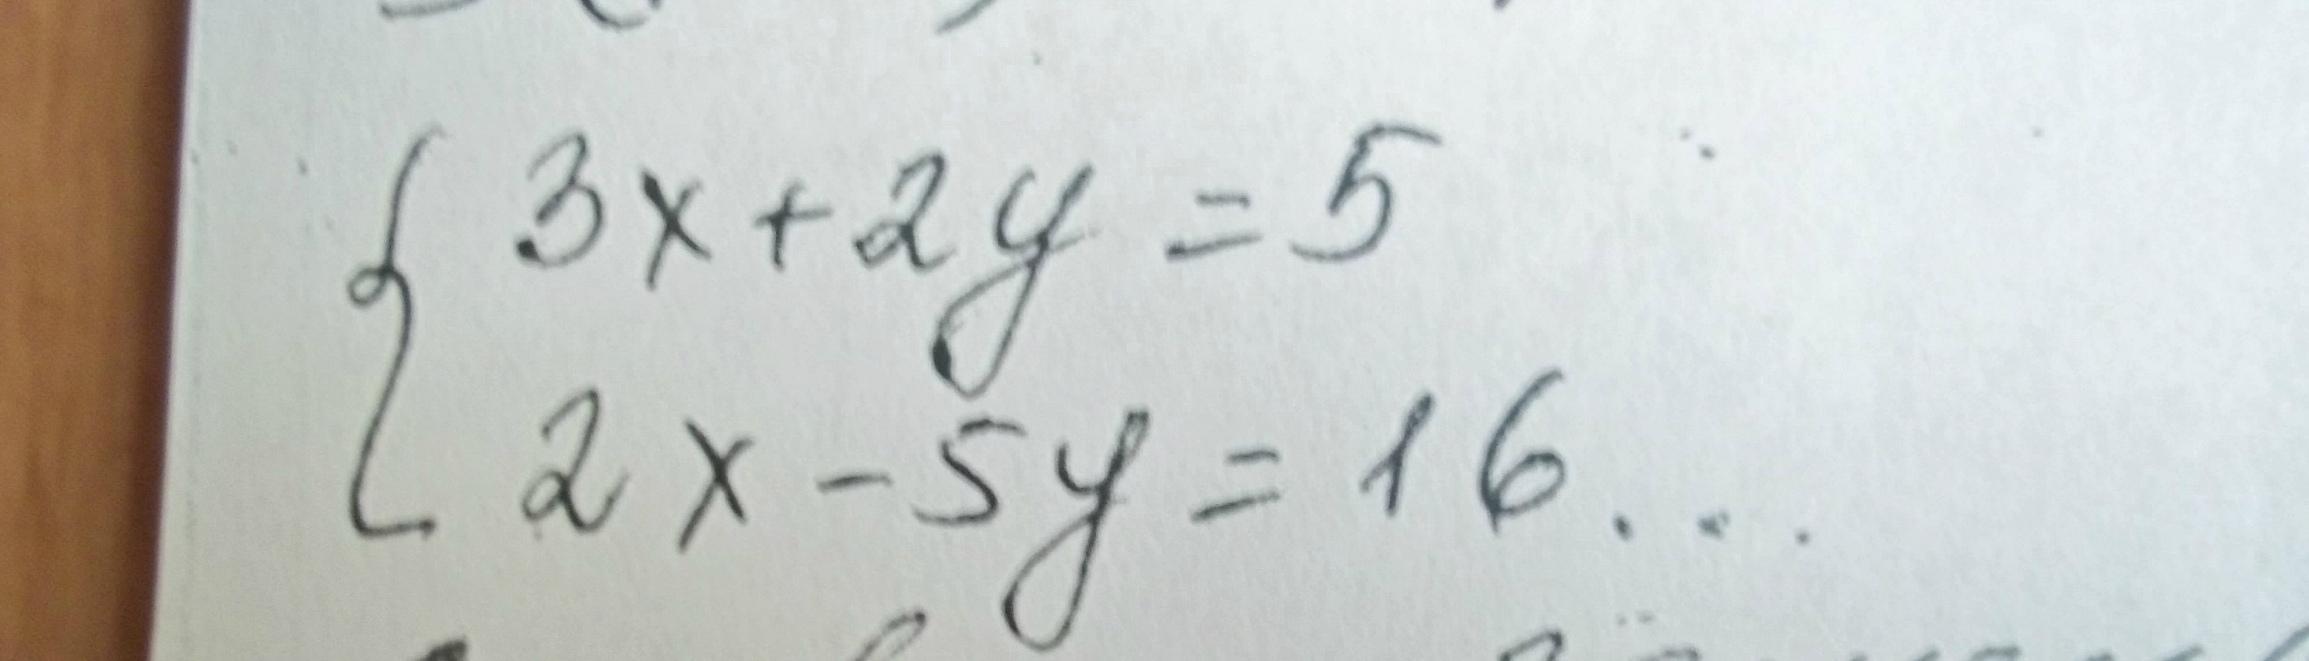 3x+2y=5
2x-5y=16...